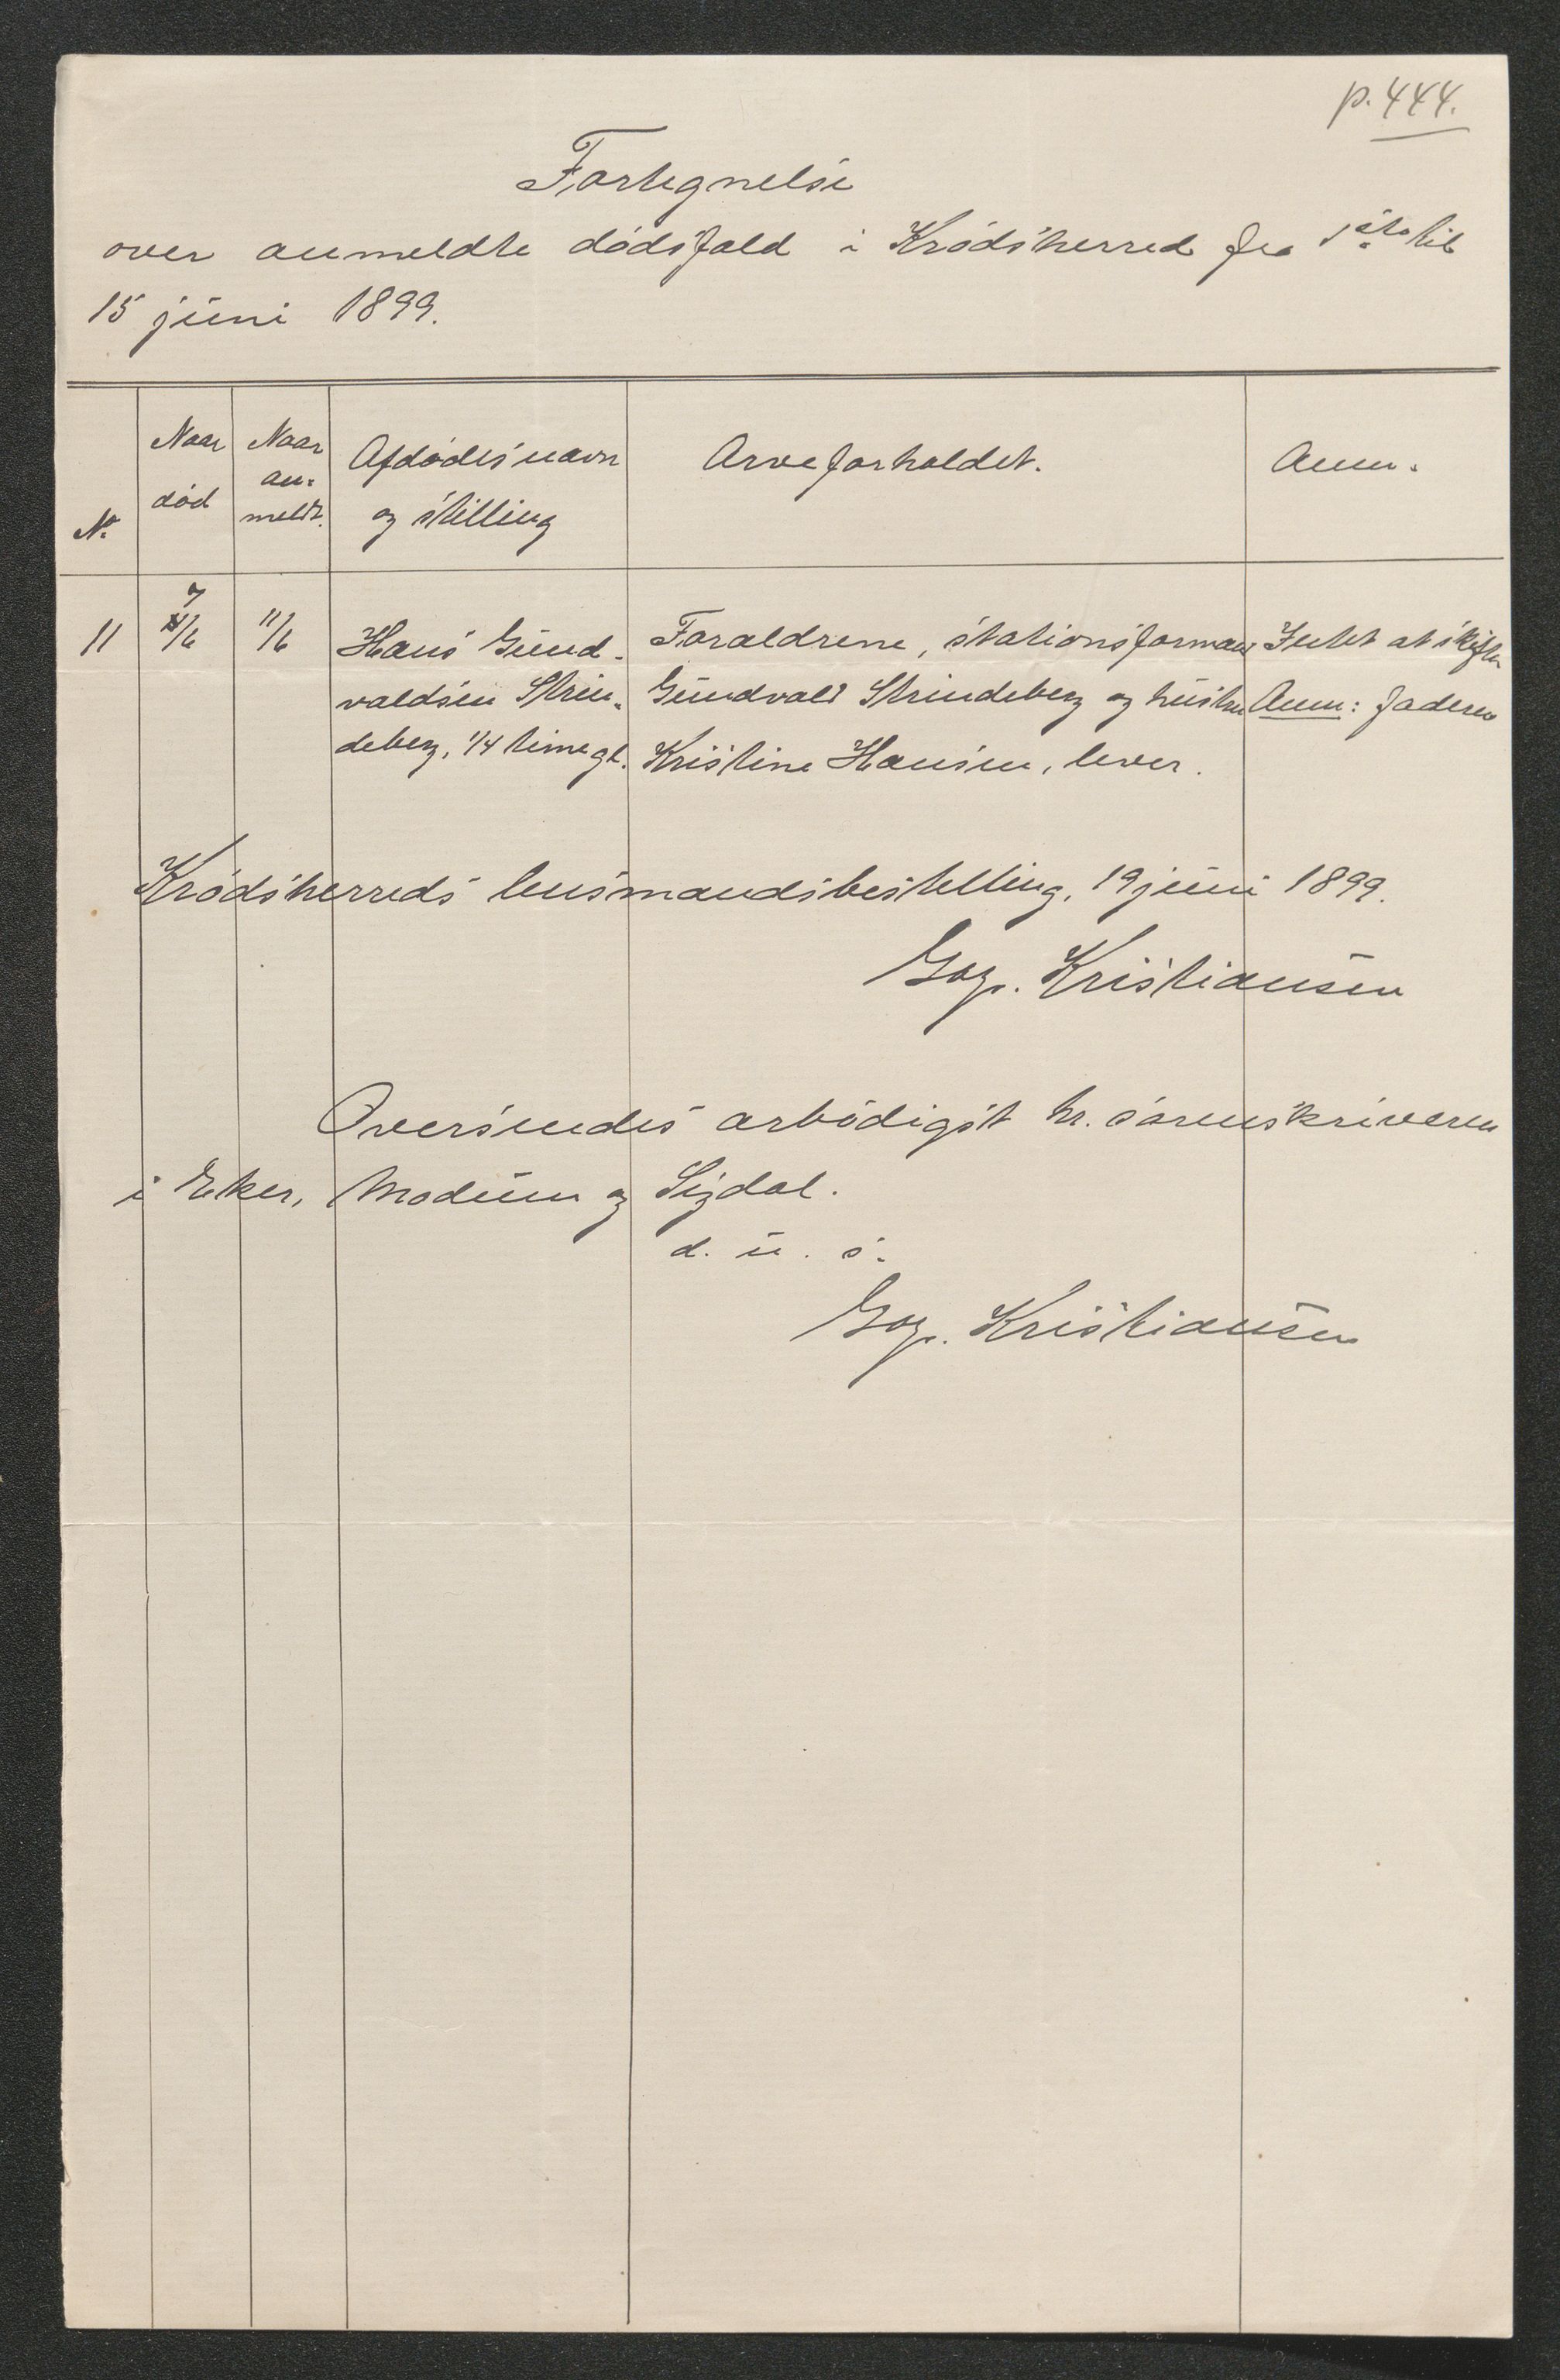 p. 444.
Fortegnelse
over anmeldte dødsfald i Krødsherred fra 1ste til
15 juni 1899.
No. | Naar død | Naar an-meldt. | Afdødes navn og stilling | Arveforholdet. | Anm.
11 | 7/6 | 11/6 | Hans Gund- | Forældrene, stationsformand | Intet at skifte
valdsen Strin- | Gundvald Strindeberg og hustru | Anm: faderen
deberg, 1/4 time gl. | Kristine Hansen, lever.
Krødsherreds lensmandsbestilling, 19 juni 1899.
Kristiansen
Oversendes ærbødigst hr. sorenskriveren
i Eker, Modum og Sigdal.
d. u. s.
Kristiansen